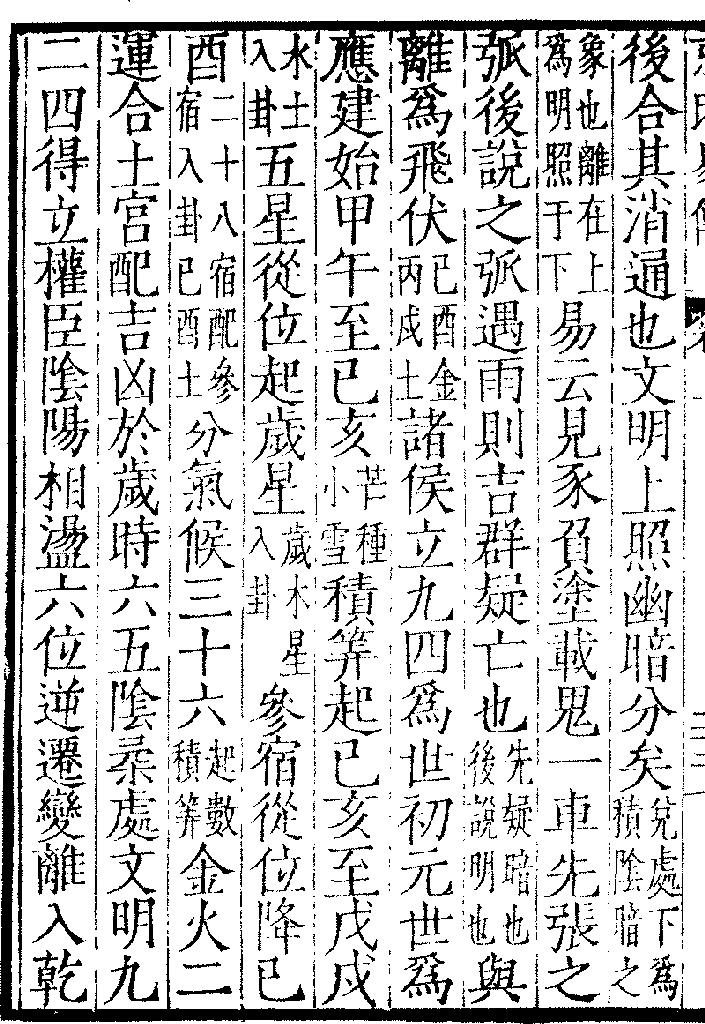 後合其消通也文明上照幽暗分矣兌處下爲積陰暗之
象也離在上爲明照于下易云見豕負塗載鬼一車先張之
弧後說之弧遇雨則吉群疑亡也先疑暗也後說明也與
離爲飛伏己酉金丙戌土諸侯立九四爲世初元世爲
應建始甲午至己亥芒種小雪積筭起己亥至戊戌
水土入卦五星從位起歲星歲木星入卦參宿從位降己
酉二十八宿配參宿入卦己酉土分氣候三十六起數積筭金火二
運合土宮配吉凶於歲時六五陰柔處文明九
二四得立權臣陰陽相盪六位逆遷變離入乾